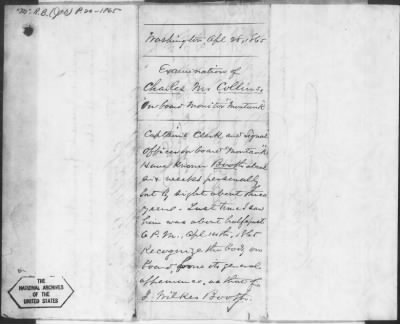 "M" R.B. (JAO) P. 20-1865
Washington, Apl 28, 1865
Examination of
Charles M. Collins,
On board Monitor Montauk
Capt's Clerk and signal
Officer on board Montauk
Have known Booth about
six weeks personally
but by sight about three
years. Last time I saw
him was about half past
6 P.M., Apl 14th, 1865
Recognize the body on
board, from its general
appearance, as that of
J. Wilkes Booth.
THE
NATIONAL ARCHIVES
OF THE
UNITED STATES